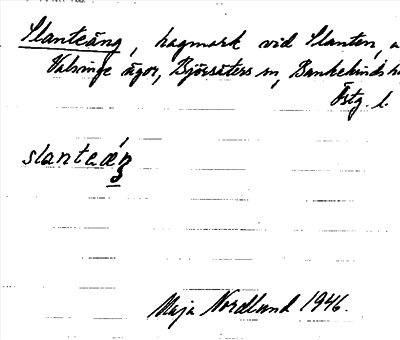 Slanteäng, hagmark vid Slanten, å
Valsinge ägor, Björsäters sn, Bankekinds h
Östg. l.
slanteäŋ
Maja Nordlund 1946.